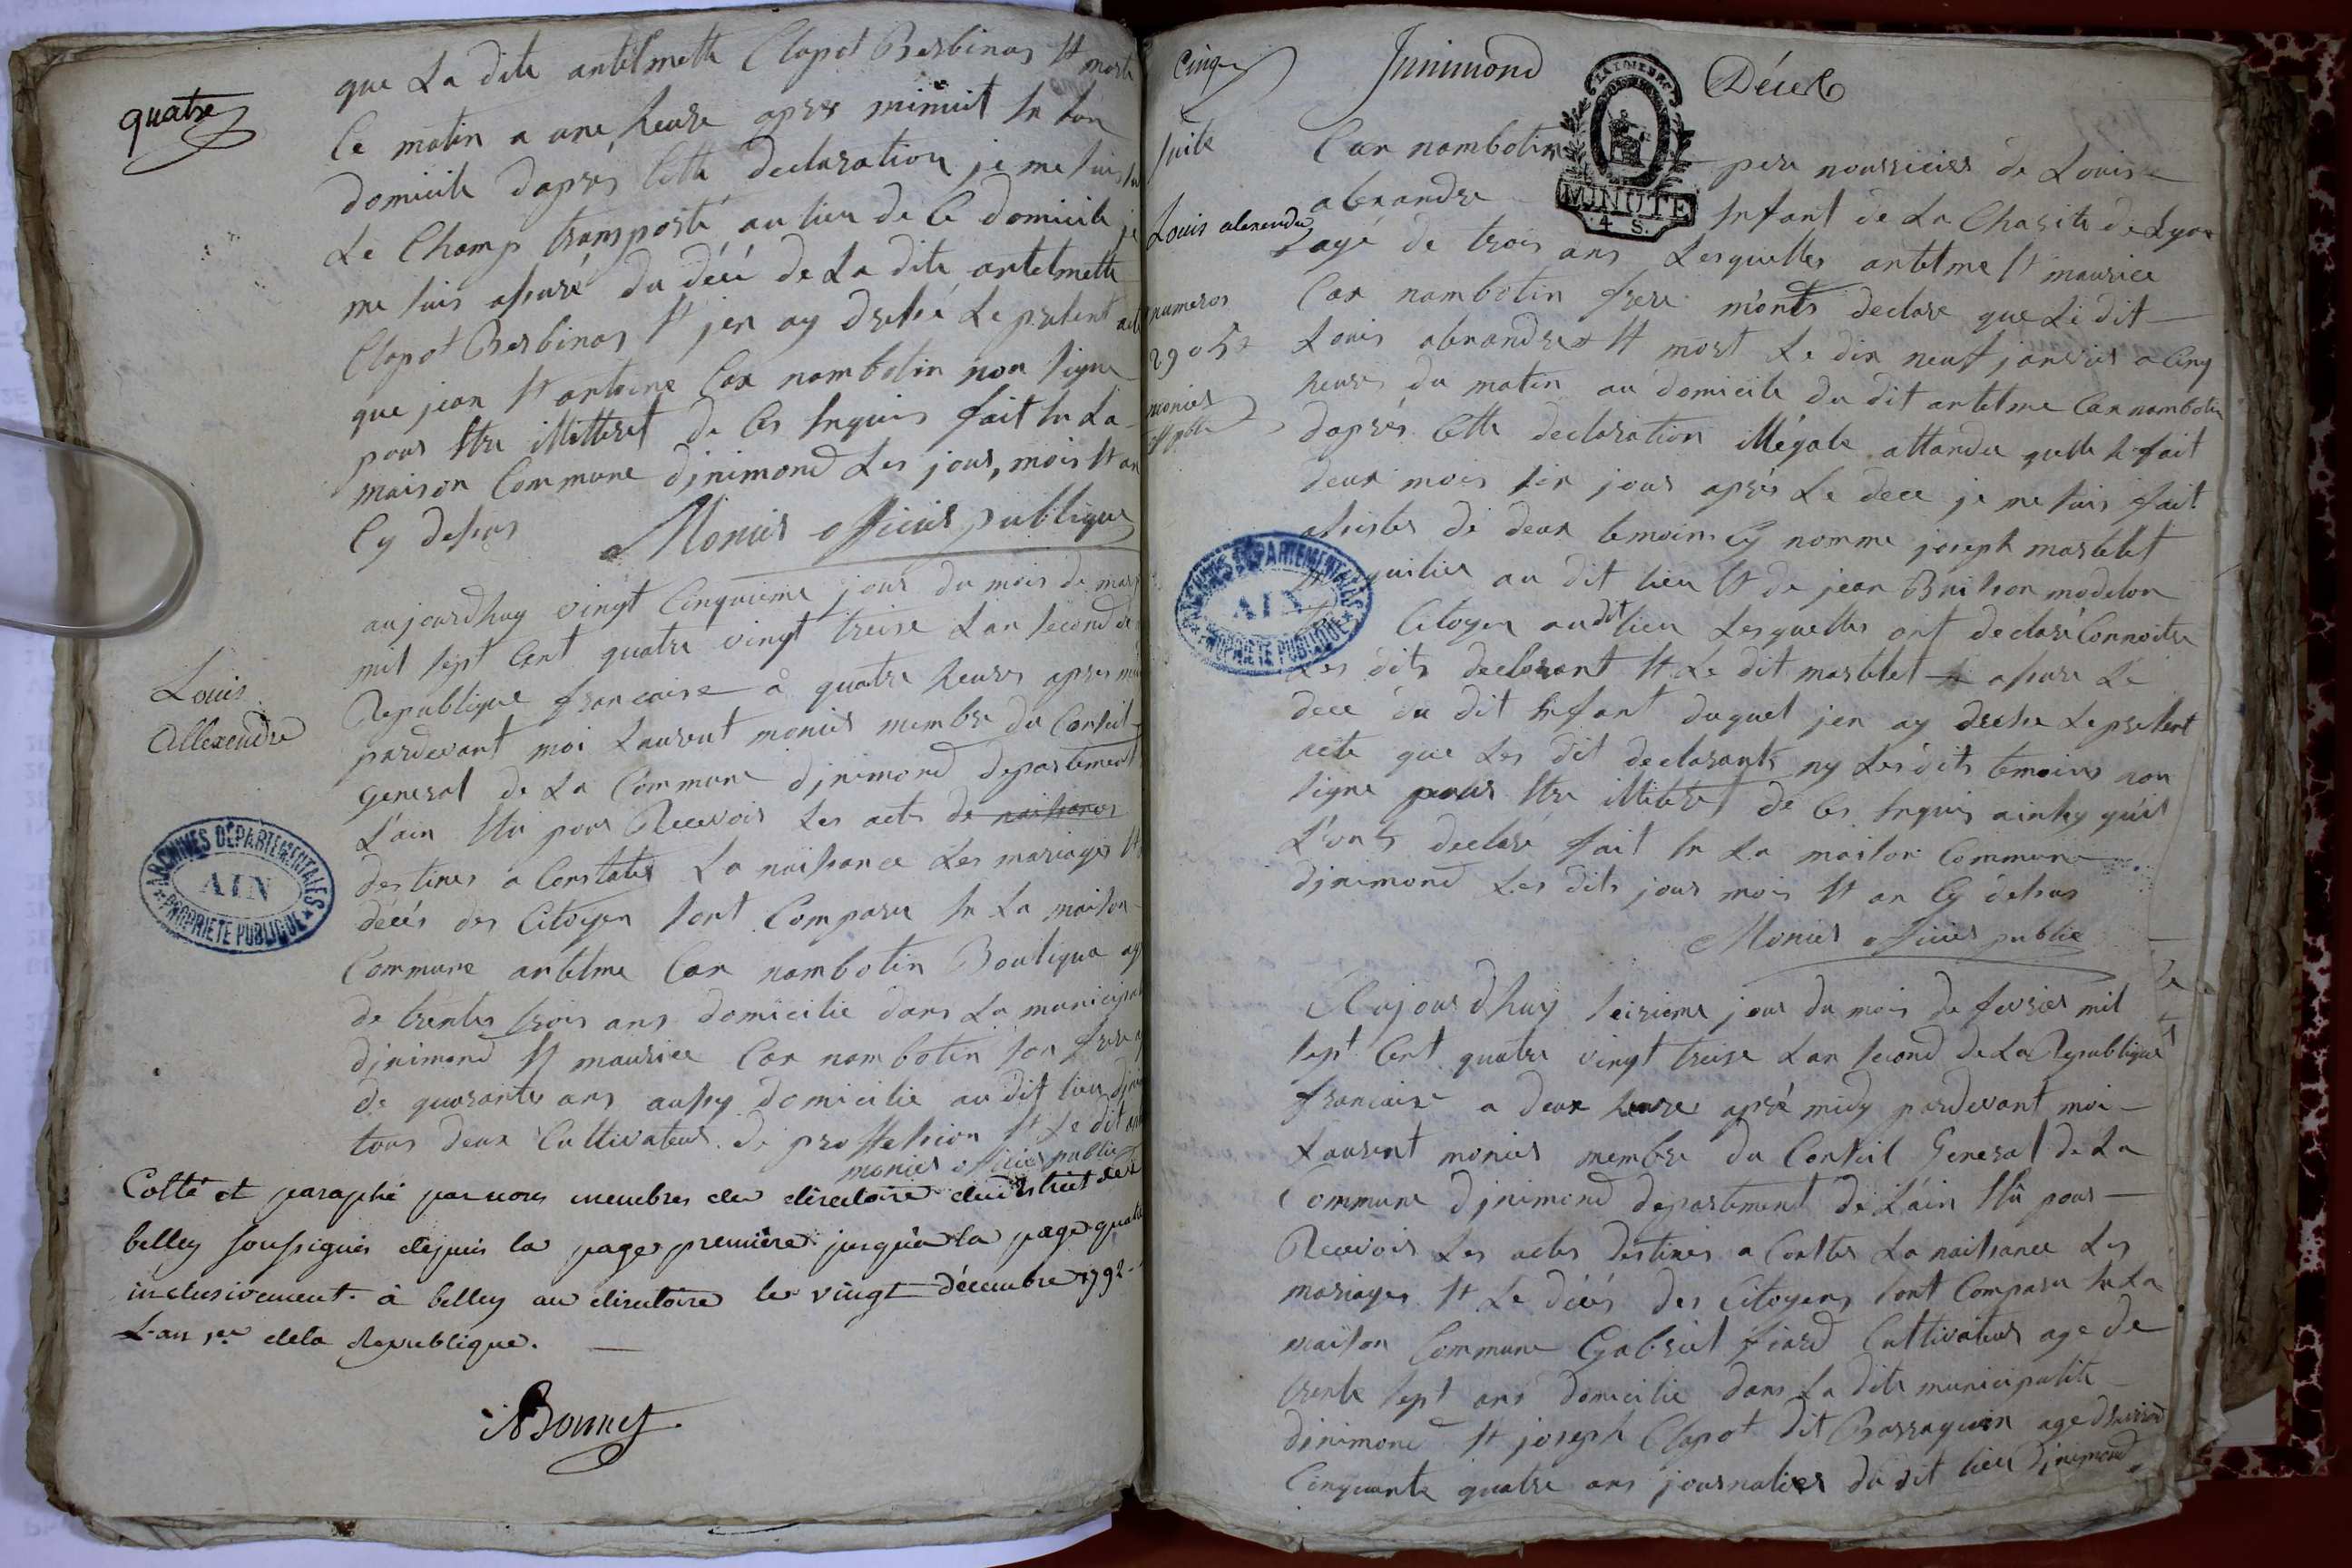 quatre
que La dite antelmette Clapot Berbinas Et morte
Ce matin a une heure apres minuit En son
domicile daprés Cette declaration je me suis sur
Le Champ transporté au lieu de Ce domicile je
me suis assuré du décé de La dite antelmette
Clapot Berbinas Et jen ay dressé Le present acte
que jean Et antoine Cax nambotin non signe
pour Etre illitteret de Ces Enquis fait En La
maison Commune djnimond Les jour, mois Et an
Cy dessus Monier officier publique
Louis
Allexendre
aujourdhuy vingt Cinquieme jour du mois de mars
mil sept Cent quatre vingt treise Lan second de
Republique francaise a quatre heures apres midi
pardevant moi Laurent monier membre du Conseil
General de La Commune djnimond departement
L'ain Elu pour Recevoir Les acts de naissances
destines a Constater La naissance Les mariages Et
décés des Citoyen sont Comparu En La maison
Commune antelme Cax nambotin Boutiqua ag
de trentes trois ans domicilie dans La municipal
djnimond Et maurice Cax nambotin son frere a
de quarantes ans aussy domicilie au dit lieu djni
tous deux Cultivateur de proffession Et Le dit an
monier officier public
Cotté et paraphé par nous membres du directoire du district de
belley soussignés depuis la page première jusqu'à la page quatre
inclusivement. à belley au directoire le vingt décembre 1792
L'an 1er de la Republique.
Bonnet
ARCHIVES DÉPARTEMENTALES
AIN
PROPRIETE PUBLIQUE
Cinq
Jnimond
Décés
LA LOI
MINUTE
4 S.
suite
Louis alexendre
numeros
2905
monier
off pbli
Cax nambotin pere nourricier de Louis
alexandre Enfant de La Charite de Lyon
agé de trois ans Lesquelles antelme Et maurice
Cax nambotin frere m'onts declare que Le dit
Louis alexandre Et mort Le dix neuf janvier a Cinq
heures du matin au domicile du dit antelme Cax nambotin
daprés Cette declaration illégale attandu quelle Et fait
deux mois six jour aprés Le dece je me suis fait
assister de deux temoins Cy nomme joseph martelet
au dit lieu Et de jean Brisson modelon
Citoyen audit lieu Lesquelles ont declaré Connoitre
Les dits declarant Et Le dit martelet assure Le
dece du dit Enfant duquel jen ay dresse Le present
acte que Les dit declarants ny Les dits temoins non
signe pour Etre illiteret de Ces Enquis ainsy quil
L'onts declare fait En La maison Commune
djnimond Les dits jour mois Et an Cy dessus
Monier officier public
ARCHIVES DÉPARTEMENTALES
AIN
PROPRIETE PUBLIQUE
Aujourdhuy seisieme jour du mois de fevrier mil
sept Cent quatre vingt treise Lan second de La Republique
francaise a deux heures apré midy pardevant moi
Laurent monier membre du Conseil General de La
Commune djnimond departement de L'ain Elu pour
Recevoir Les actes destines a Conster La naissance Les
mariages Et Le décés des Citoyens sont Comparu En La
maison Commune Gabriel fiard Cultivateur age de
trente sept ans domicilie dans La dite municipalite
djnimond Et joseph Clapot dit Barraquin age denviron
Cinquante quatre ans journalier du dit lieu Djnimond